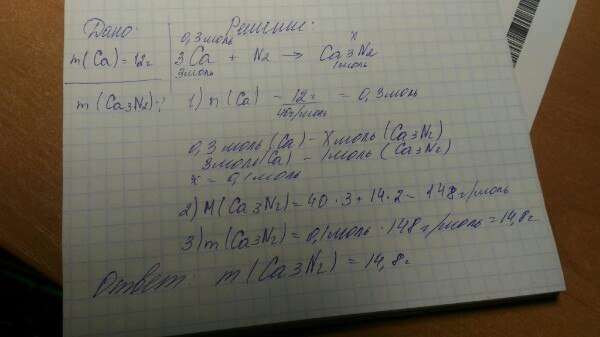 Дано:
m(Ca) = 12г
m(Ca3N2)-?
Решение:
0,3моль x
3Ca + N2 → Ca3N2
3моль 1моль
1) n(Ca) - 12г / 40г/моль = 0,3моль
0,3моль(Ca) - Xмоль(Ca3N2)
3моль(Ca) - 1моль (Ca3N2)
x = 0,1моль
2) M(Ca3N2) = 40·3+14·2 = 148г/моль
3) m(Ca3N2) = 0,1моль·148г/моль = 14,8г
Ответ: m(Ca3N2) = 14,8г